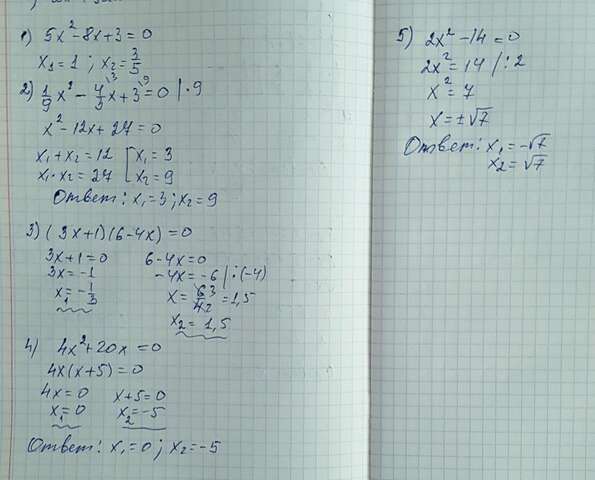 1) 5x² - 8x + 3 = 0
x₁ = 1 ; x₂ = 3/5
2) 1/9 x² - 4/3 x + 3 = 0 | · 9
x² - 12x + 27 = 0
x₁ + x₂ = 12 [ x₁ = 3
x₁ · x₂ = 27 [ x₂ = 9
Ответ: x₁ = 3 ; x₂ = 9
3) (3x+1)(6-4x) = 0
3x+1=0 6-4x=0
3x=-1 -4x=-6 | :(-4)
x₁=-1/3 x = 6/4 = 1,5
x₂ = 1,5
4) 4x² + 20x = 0
4x(x+5) = 0
4x=0 x+5=0
x₁=0 x₂=-5
Ответ: x₁=0 ; x₂=-5
5) 2x² - 14 = 0
2x² = 14 / : 2
x² = 7
x = ±√7
Ответ: x₁ = -√7
x₂ = √7